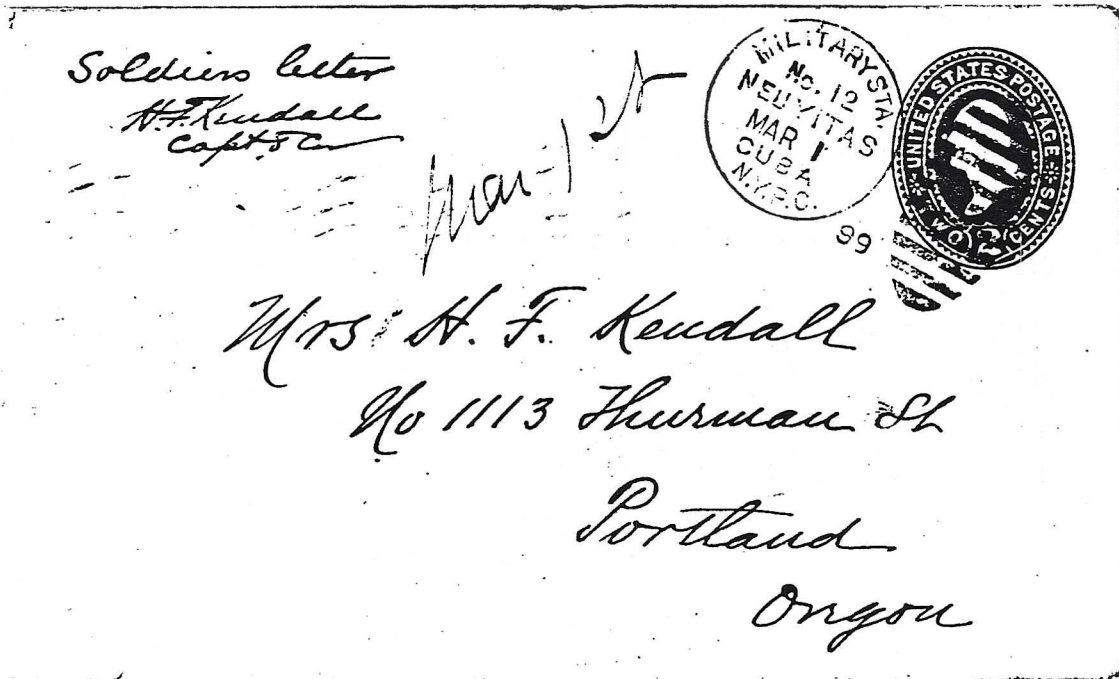 Soldiers letter
H.F. Kendall
Capt. 8 Cav
Mar-1st
MILITARY STA.
No. 12
NEUVITAS
MAR 1
CUBA
N.Y.P.O.
99
UNITED STATES POSTAGE
TWO 2 CENTS
Mrs H. F. Kendall
No 1113 Thurman St
Portland
Oregon